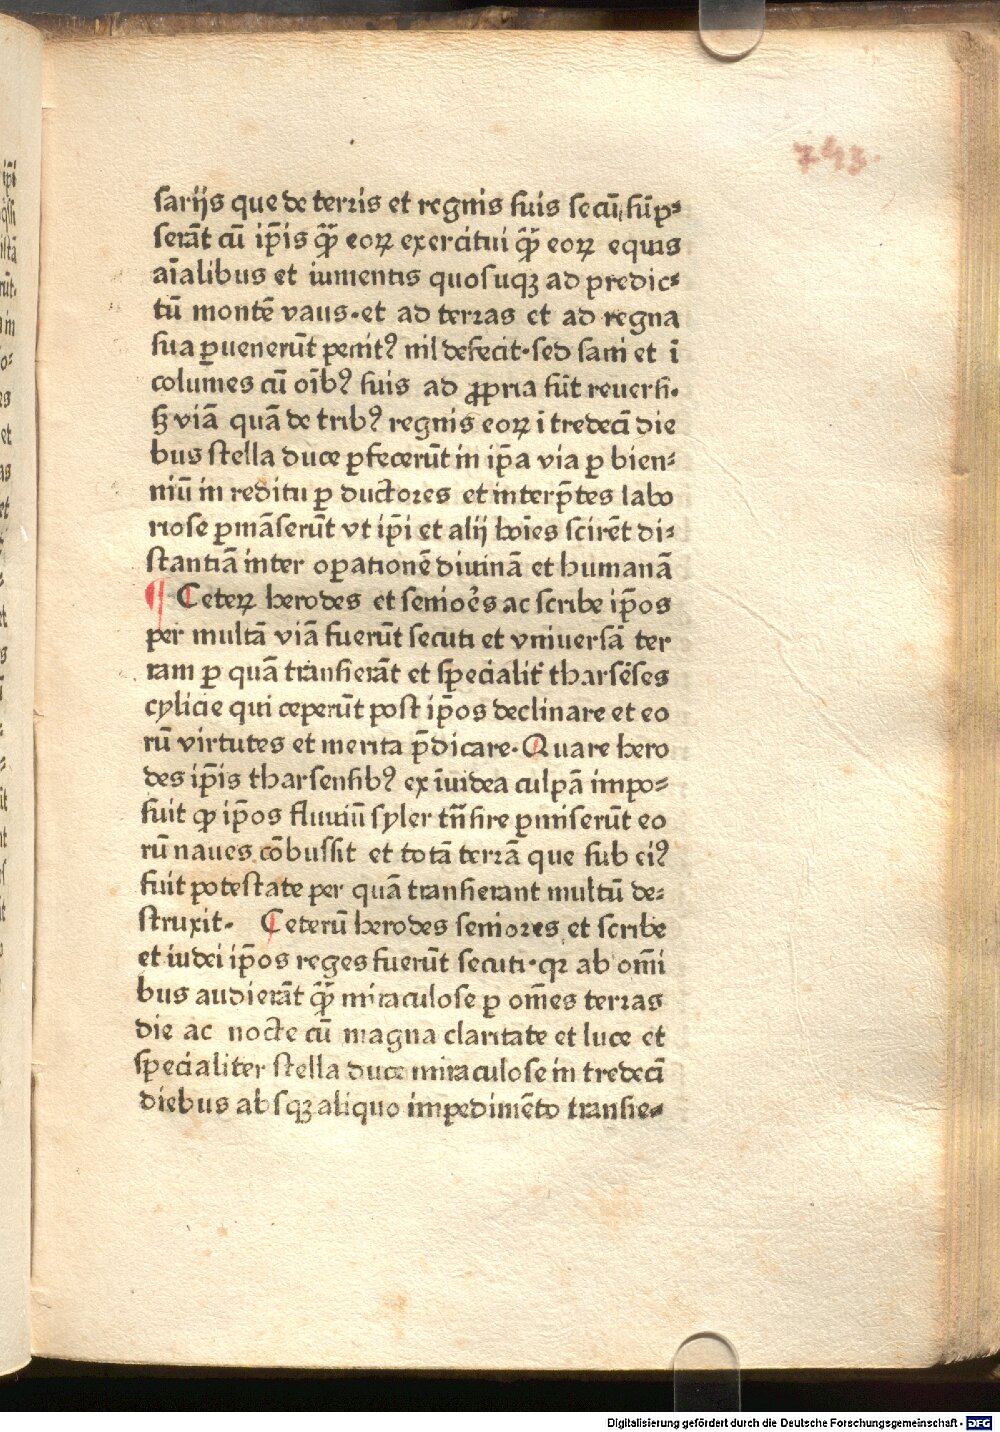 743
sarijs que de terris et regnis suis secū sūp⸗
serāt cū ip̄is qͣ eoꝝ exercitui qͣ eoꝝ equis
aīalibus et iumentis quosuqꝫ ad predic⸗
tū montē vaus·et ad terras et ad regna
sua ꝑuenerūt penitꝰ nil defecit·sed sani et ī
columes cū oībꝰ suis ad ꝓpria sūt reuersi·
sꝫ viā quā de tribꝰ regnis eoꝝ i tredecī die
bus stella duce ꝑfecerūt in ip̄a via ꝑ bien⸗
niū in reditu ꝑ ductores et interp̄tes labo
riose ꝑmāserūt vt ip̄i et alij hoīes scirēt di⸗
stantiā inter oꝑationē diuinā et humanā
¶ Ceteꝝ herodes et senioēs ac scribe ip̄os
per multā viā fuerūt secuti et vniuersā ter
ram ꝑ quā trāsierāt et specialit̄ tharsēses
cylicie qui ceperūt post ip̄os declinare et eo
rū virtutes et merita p̄dicare·Quare hero
des ip̄is tharsensibꝰ ex īuidea culpā impo⸗
suit ꝙ ip̄os fluuiū syler trāsire ꝑmiserūt eo
rū naues cōbussit et totā terrā que sub eiꝰ
fuit potestate per quā transierant multū de⸗
struxit· Ceterū herodes seniores et scribe
et iudei ip̄os reges fuerūt secuti·qꝛ ab om̄i
bus audierāt qͣ miraculose ꝑ om̄es terras
die ac nocte cū magna claritate et luce et
specialiter stella duce miraculose in tredecī
diebus absqꝫ aliquo impedimēto transie⸗
Digitalisierung gefördert durch die Deutsche Forschungsgemeinschaft - DFG